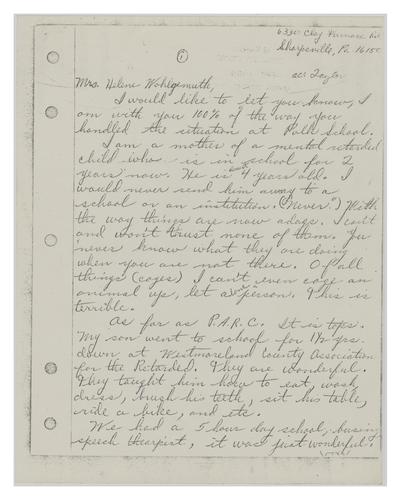 Clay Furnace Rd.
Sharpsville, Pa. 16150
①
Mrs. Helene Wohlgemuth,
I would like to let you know, I
am with you 100% of the way you
handled the situation at Polk School.
I am a mother of a mental retarded
child who is in school for 2
years now. He is only 4 years old. I
would never send him away to a
school or an institution. (Never) With
the way things are now adays. I can't
and won't trust none of them. You
never know what they are doing
when you are not there. Of all
things (cages) I can't even cage an
animal up, let a person. This is
terrible.
As far as P.A.R.C. It is tops.
My son went to school for 1½ yrs.
down at Westmoreland County Association
for the Retarded. They are wonderful.
They taught him how to eat, wash,
dress, brush his teeth, sit his table,
ride a bike, and etc.
We had a 5 hour day school, busing
speech thearpist, it was just wonderful.
(over)